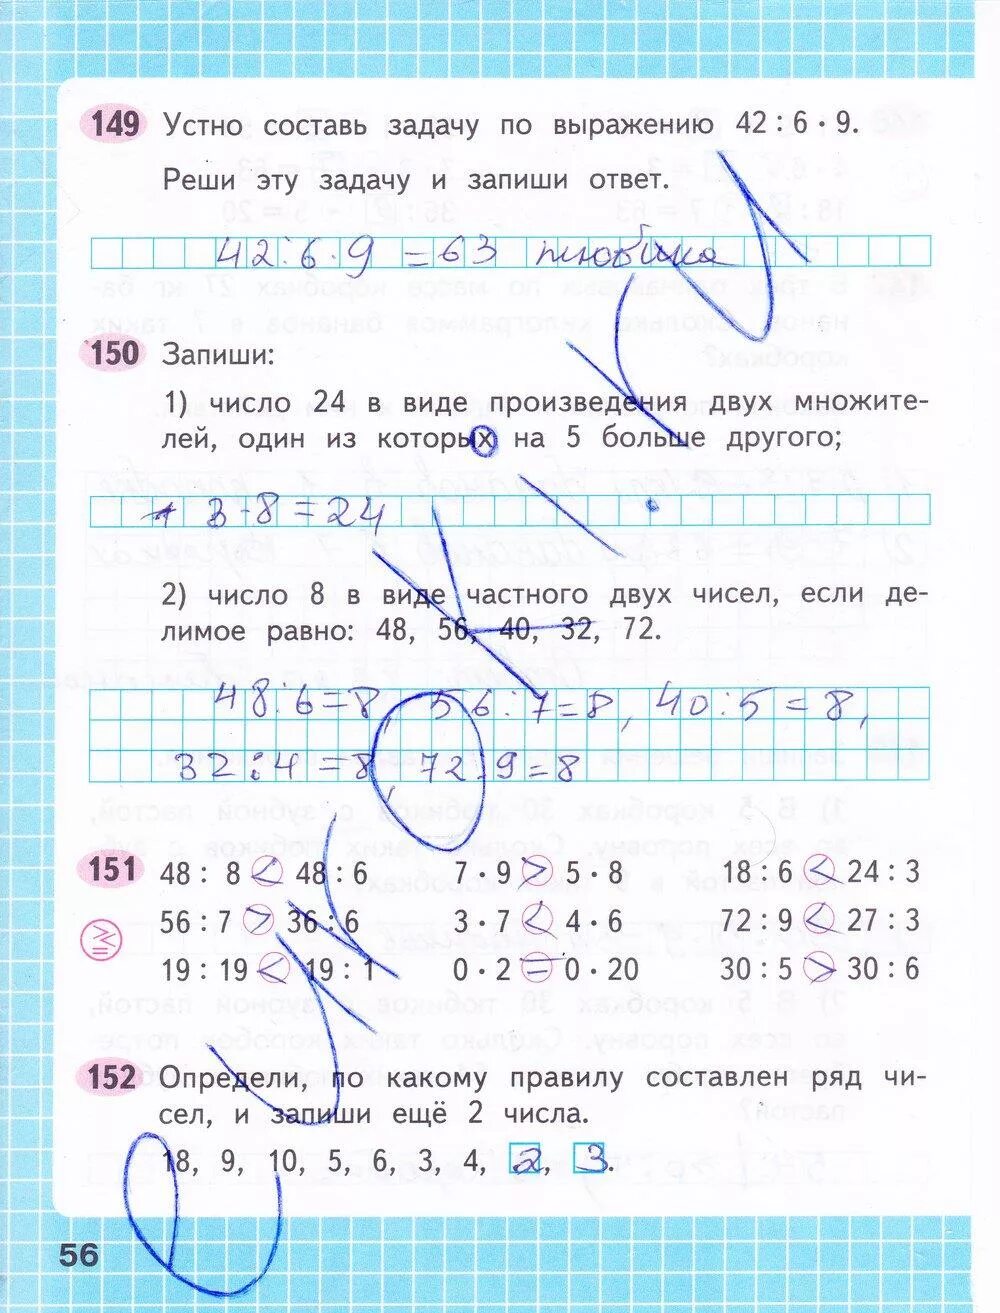 149 Устно составь задачу по выражению 42 : 6 · 9.
Реши эту задачу и запиши ответ.
42 : 6 · 9 = 63 тюбика
150 Запиши:
1) число 24 в виде произведения двух множите-
лей, один из которых на 5 больше другого;
3 · 8 = 24
2) число 8 в виде частного двух чисел, если де-
лимое равно: 48, 56, 40, 32, 72.
48 : 6 = 8, 56 : 7 = 8, 40 : 5 = 8,
32 : 4 = 8, 72 : 9 = 8
151 48 : 8 < 48 : 6 7 · 9 > 5 · 8 18 : 6 < 24 : 3
56 : 7 > 36 : 6 3 · 7 < 4 · 6 72 : 9 < 27 : 3
19 : 19 < 19 : 1 0 · 2 = 0 · 20 30 : 5 > 30 : 6
152 Определи, по какому правилу составлен ряд чи-
сел, и запиши ещё 2 числа.
18, 9, 10, 5, 6, 3, 4, 2, 3.
56